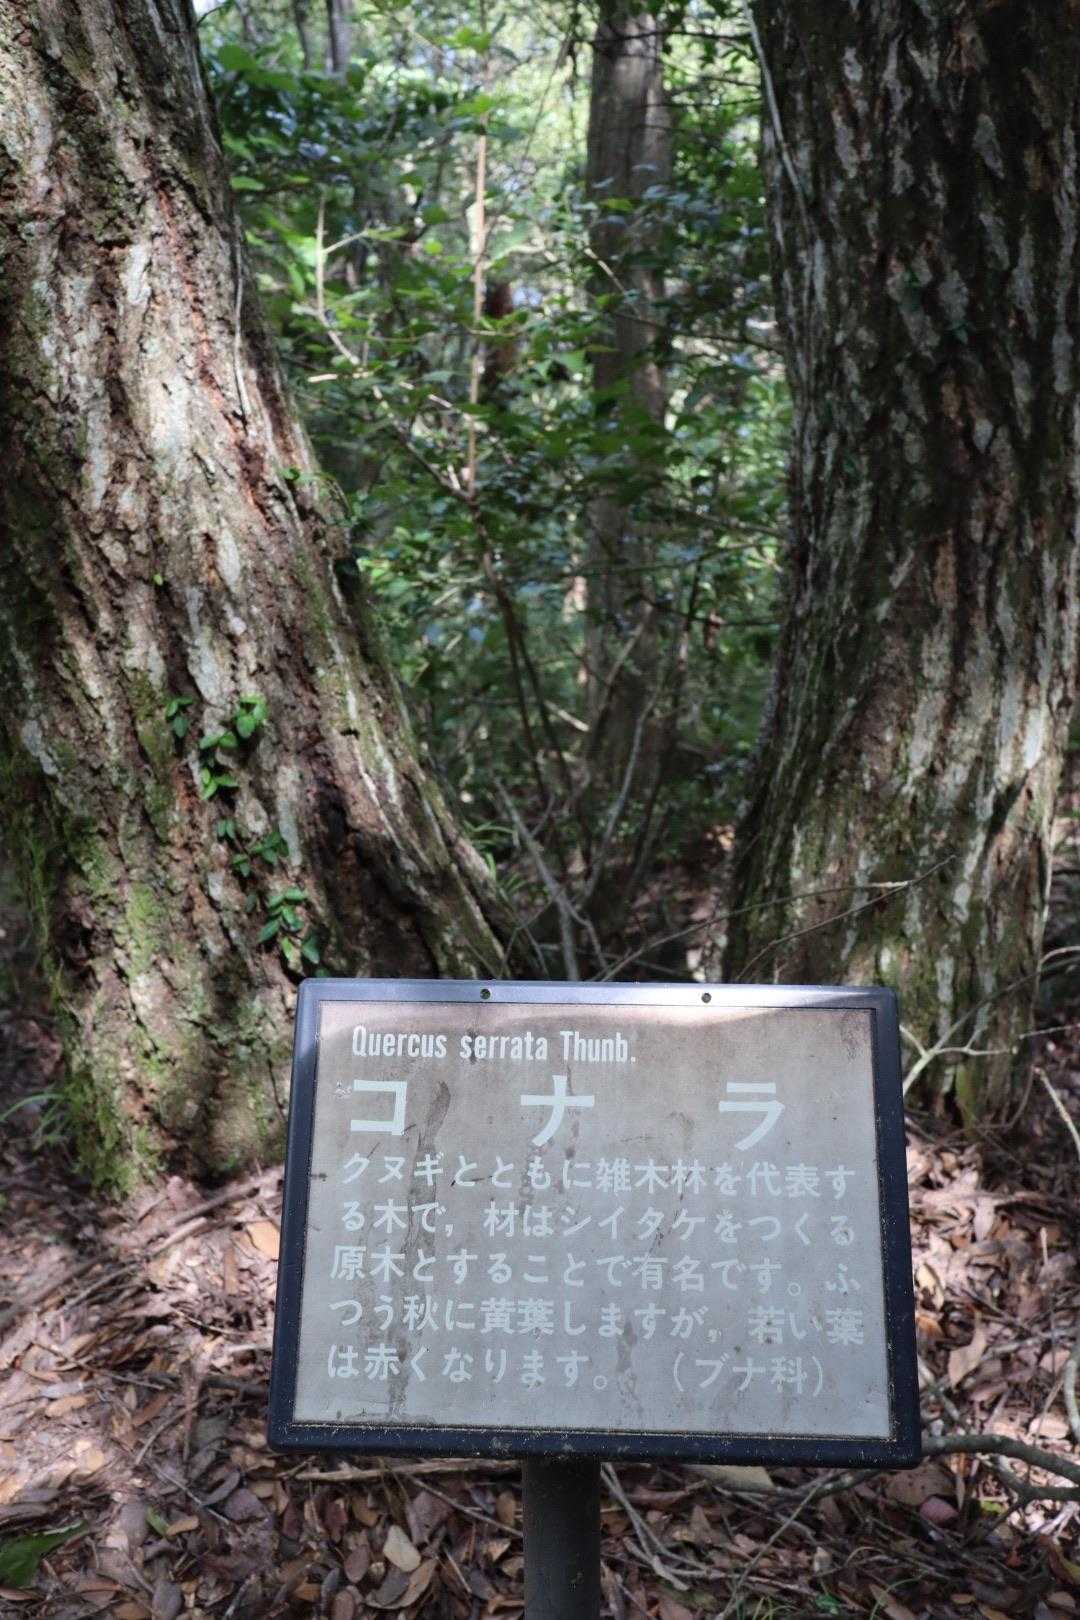 Quercus serrata Thunb.
コナラ
クヌギとともに雑木林を代表す
る木で，材はシイタケをつくる
原木とすることで有名です。ふ
つう秋に黄葉しますが，若い葉
は赤くなります。　（ブナ科）